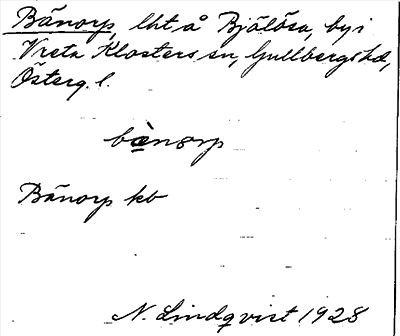 Bänorp, lht å Bjälösa, by i
Vreta Klosters sn, Gullbergs hd,
Österg. l.
bæ̀norp
Bänorp kb
N. Lindqvist 1928